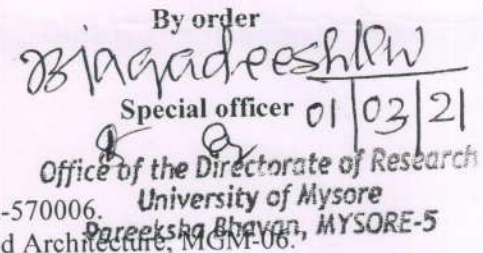 By order
Special officer 01/03/21
Office of the Directorate of Research
University of Mysore
Pareeksha Bhavan, MYSORE-5
-570006.
d Architecture, MGM-06.